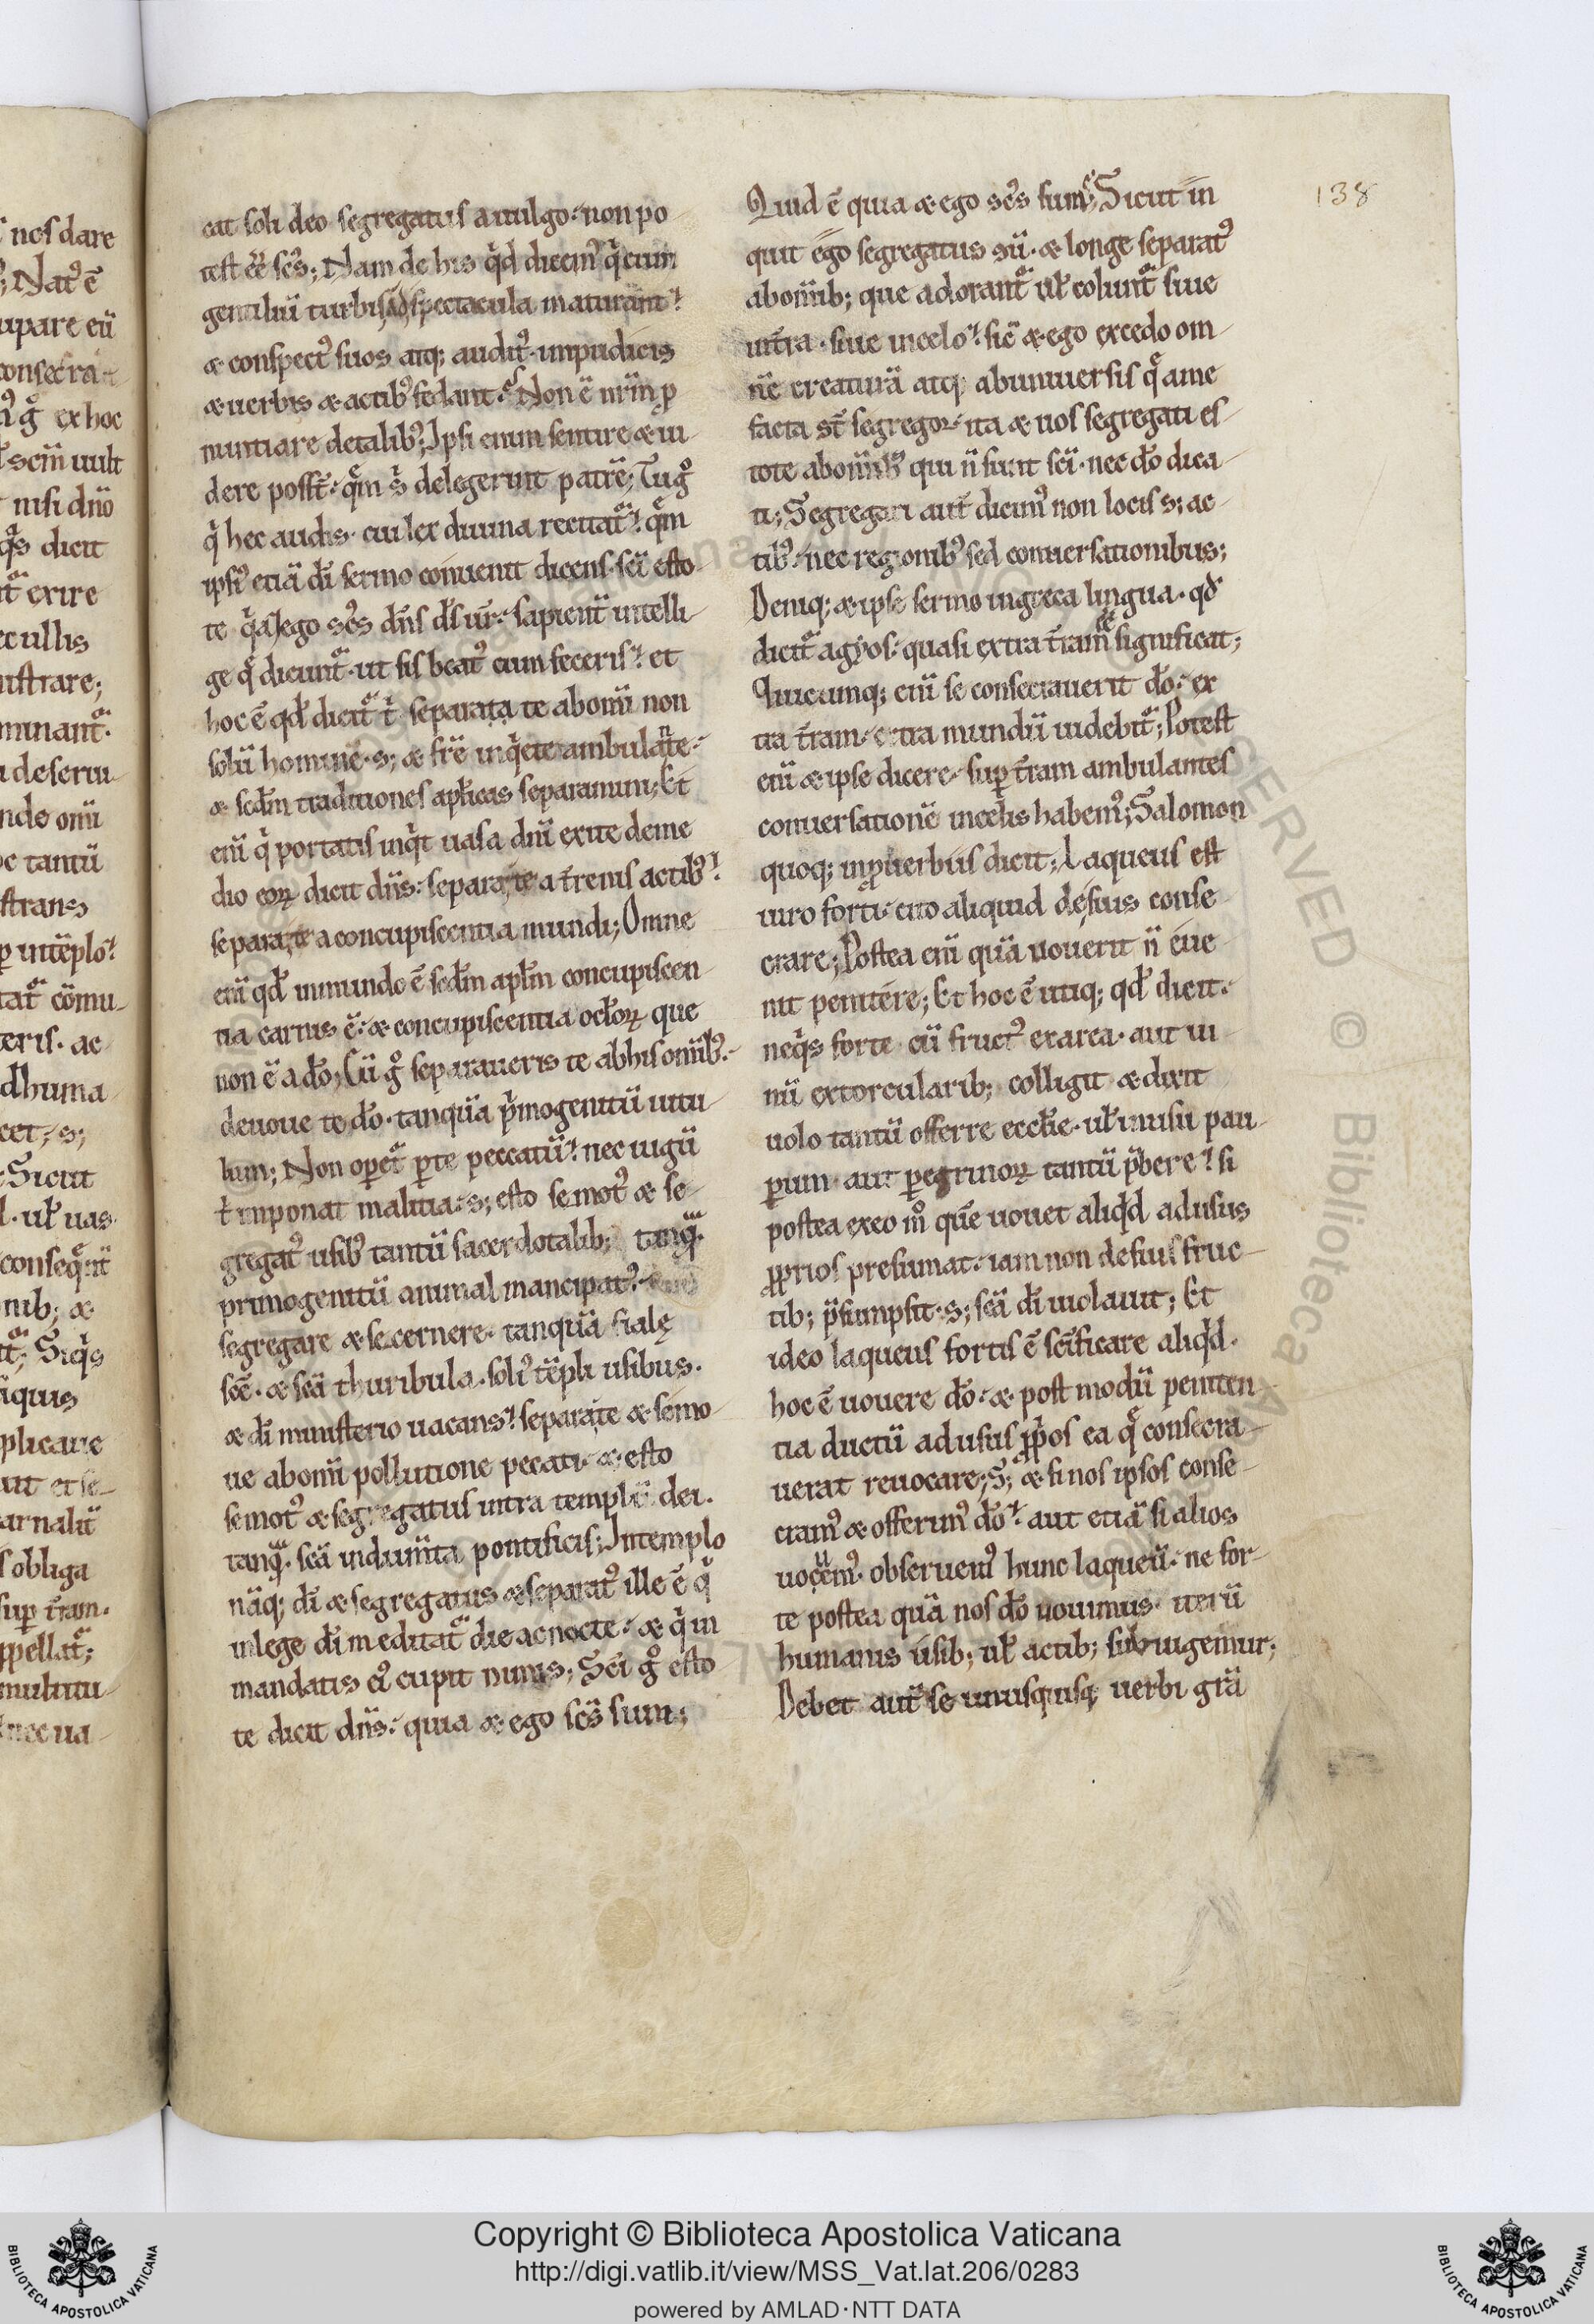 nos dare
; Nat᾿ ē
upare eū
consecra-
ex hoc
scīm uult
nisi dn̄o
q̄s dicit
exire
ullis
istrare;
minant᷑.
deserui-
nde om̄i
tantū
strans
intēplo
tat᷑ cōmu-
teris. ac
dhuma-
cet, s;
Sicut
ul̄ uas
conseq̄nt̄
nib; æ
Siq̄s
iquis
plicaue
uit et se-
arnaliū
obliga
sup̱ t̄ram.
ppellat᷑;
multitu-
nec ua-
cat soli deo segregatus a uulgo. non po-
test eē scs̄; Nam de his qd̄ dicem᾿ q̄ cum
gentiliū turbis ad spectacula maturant
æ conspect᾿ suos atq; audit᾿ impudicis
æ uerbis æ actib᾿ fedant. Non ē nr̄m p̱
nuntiare detalib᾿; Ipsi enim sentire æ ui-
dere poss̄t. qm̄ s̄ delegerint patrē; Tu g°
q̄ hec audis. cui lex diuina recitat᷑ qm̄
ipsi᾿ etiā dī sermo conuenit dicens. scī esto-
te q̄a ego scs̄ dn̄s ds̄ ur̄. sapient̄ intelli-
ge q̄ dicunt᷑. ut sis beat᾿ cum feceris et
hoc ē qd̄ dicit᷑ t̄. separata te abom̄i non
solū homine. s; æ fr̄e inq̄ete ambulante
æ scdm̄ traditiones apl̄icas separamini; Et
eni q̄ portatis inq̄t uasa dn̄i exite deme-
dio eoꝝ dicit dn̄s. separate a t̄renis actib᾿
separate a concupiscentia mundi; Omne
eni qd̄ inmundo ē scdm̄ apl̄m concupiscen-
tia carnis ē. æ concupiscentia ocl̄oꝝ que
non ē a do; Cū g° separaueris te ab his om̄ib᾿.
deuoue te do. tanquā p̄mogenitū uitu-
lum; Non opet᷑ p̱ te peccatū nec iugū
t̄ imponat malitia. s; esto semot᾿ æ se-
gregat᾿ usib᾿ tantū sacerdotalib; tanq̄.
primogenitū animal mancipat᾿.
segregare æ secernere. tanquā fialę
scē. æ scā thuribula. soli᾿ tēpli usibus.
æ dī ministerio uacans separate æ semo-
ue abom̄i pollutione peccati. æ esto
semot᾿ æ segregatus intra templū dei.
tanq̄. scā indumīta pontificis; In templo
nāq; dī æ segregatus æ separat᾿ ille ē q̄
in lege dī meditat᷑ die ac nocte. æ q̄ in
mandatis ei᾿ cupit nimis; Scī g° esto-
te dicit dn̄s. quia æ ego scs̄ sum;
138
Quid ē quia æ ego scs̄ sum; Sicut in-
quit ego segregatus sū. æ longe separat᾿
abom̄ib; que adorant᷑ ul̄ colunt᷑ siue
int̄ra. siue in celo sic æ ego excedo om-
nē creaturā atq; ab uniuersis q̄ a me
facta st̄ segregor. ita æ uos segregati es-
tote abom̄ib᾿ qui n̄ sunt scī. nec do dica-
ti; Segregari aut̄ dicim᾿ non locis s; ac-
tib᾿. nec regionib᾿ sed conuersationibus;
Deniq; æ ipse sermo in greca lingua. qd̄
dicit᷑ agyos. quasi extra t̄ram significat;
Quicunq; eni se consecrauerit do. ex-
tra t̄ram. extra mundū uidebit᷑; Potest
eni æ ipse dicere. sup̱ t̄ram ambulantes
conuersationē in celis habem᾿; Salomon
quoq; in p̱uerbiis dicit; Laqueus est
uiro forti. cito aliquid de suis conse-
crare; Postea eni quā uouerit n̄ eue-
nit penitere; Et hoc ē utiq; qd̄ dicit.
ne q̄s forte cū fruct᾿ ex area. aut ui-
nū ex torcularib; colligit æ dixit
uolo tantū offerre eccl̄ie. ul̄ in usū pau-
p̱um aut p̱egrinoꝝ tantū p̄bere si
postea ex eo m° quē uouet aliqd̄ ad usus
p̱prios presumat. iam non de suis fruc-
tib; p̄sumpsit. s; scā dī uiolauit; Et
ideo laqueus fortis ē scīficare aliqd̄.
hoc ē uouere do. æ post modū peniten-
tia ductū ad usus p̱p̄os ea q̄ consecra-
uerat reuocare; S; æ si nos ipsos conse-
cram᾿ æ offerim᾿ do aut etiā si alios
uocem᾿. obseruem᾿ hunc laqueū. ne for-
te postea quā nos do uouimus. iterū
humanis usib; ul̄ actib; subiugemur;
Debet aut̄ se unusquisq; uerbi gr̄a
Copyright © Biblioteca Apostolica Vaticana
http://digi.vatlib.it/view/MSS_Vat.lat.206/0283
powered by AMLAD·NTT DATA
BIBLIOTECA APOSTOLICA VATICANA
BIBLIOTECA APOSTOLICA VATICANA